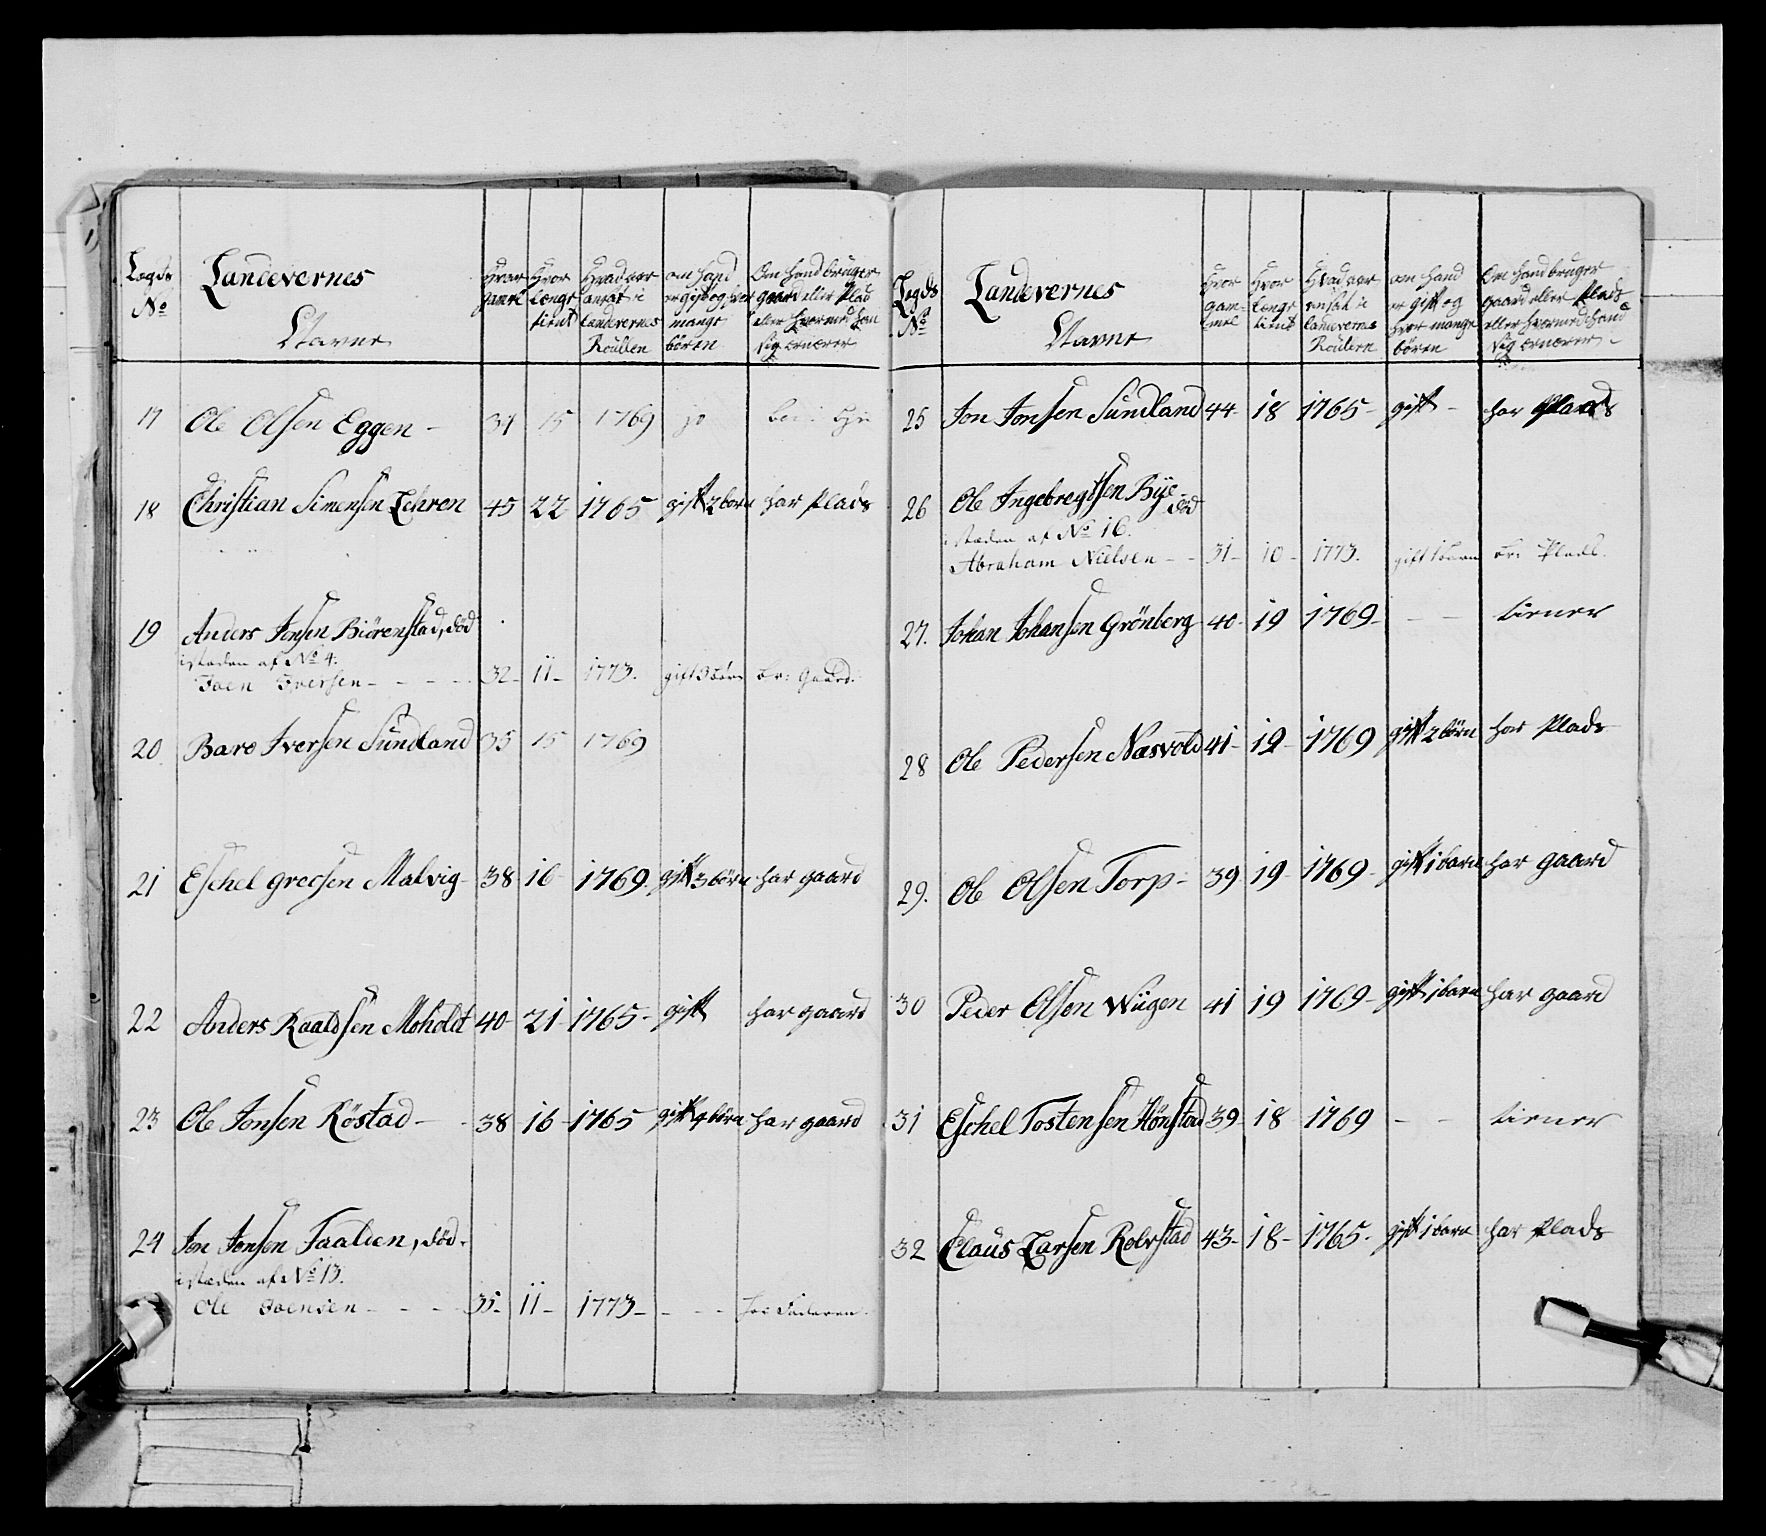 Legds No
Landevernes Navne
Hvor gamel
Hvor længe tient
Hvad aar ansat i Landevernes Roullen
om hand er gift og hvor mange börn
Om hand bruger gaard eller Plads eller hvormed han sig ernærer
17 Ole Olsen Eggen - 34 15 1769
18 Christian Simensen Lehren 45 22 1765 gift 2 born har Plads
19 Anders Jonsen Biörenstad, död
istæden af No 4:
Joen Iversen - - - - 32- 11- 1773. gift 3 börn br: Gaard:
20 Baro Iversen Sundland 35 15 1769
21 Eschel Grecsen Malvig- 38 16 1769- gift 3 börn har gaard
22 Anders Raaldsen Moholdt 40- 21- 1765- gift har gaard
23 Ole Jonsen Röstad - - 38 16- 1765 gift 4 börn har gaard
24 Jon Jonsen Taalden, död.
istæden af No 13.
Ole Joensen - - - - 35- 11- 1773- - - -
Legds No
Landevernes Navne
Hvor gammel
Hvor længe tient
Hvad aar ansat i landevernes Roullen
om hand er gift og hvor mange börn
Om hand bruger gaard eller Plads eller hvormed hand sig ernærer
25 Jon Jonsen Sundland 44- 18 1765- gift - har Plads
26 Ole Ingebregtsen Bye död
istæden af No 16.
Abraham Nielsen - - 31- 10- 1773. gift 1 barn br: Plads.
27. Johan Johansen Grönberg 40- 19 1769- - - tiener
28 Ole Pedersen Næsvold 41- 19- 1769 gift 2 börn har Plads
29. Ole Olsen Torp- 39 19- 1769- gift 1 barn har gaard
30 Peder Olsen Wiigen 41 19 1769- gift 1 barn har gaard
31 Eschel Tostensen Hönstad 39- 18- 1769 - - tiener
32 Claus Larsen Rolvstad 43- 18- 1765- gift 1 barn har Plads